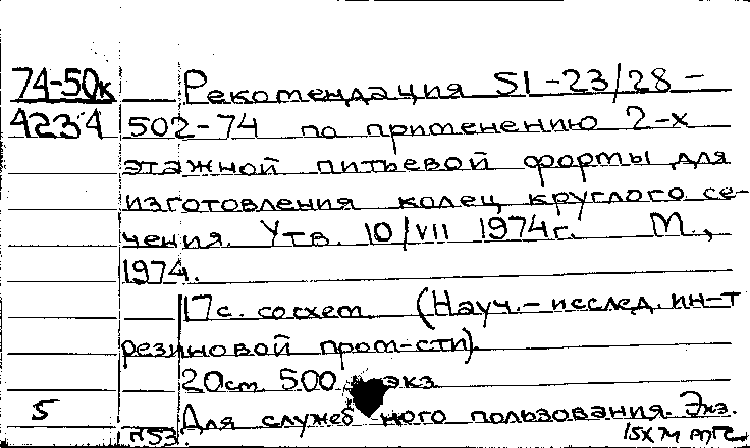 74-50к Рекомендация 51-23/28-
4234 502-74 по применению 2-х
этажной литьевой формы для
изготовления колец круглого се-
чения. Утв. 10/VII 1974г. М.,
1974.
17с. со схем. (Науч.-исслед. ин-т
резиновой пром-сти).
20см. 500 экз.
5 Для служебного пользования. Экз.
n53.